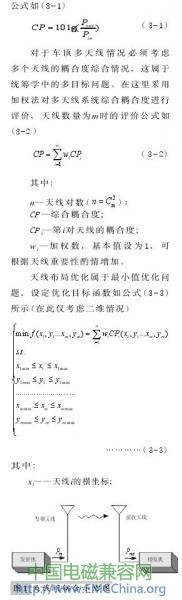 公式如(3-1)
CP = 10 lg(P_out / P_in) (3-1)
对于车顶多天线情况必须考虑
多个天线的耦合度综合情况，这属于
统筹学中的多目标问题。在这里采用
加权法对多天线系统综合耦合度进行
评价，天线数量为m时的评价公式如
(3-2)
CP = ∑ w_i CP_i (3-2)
其中：
n—天线对数(n = C_m^2)；
CP—综合耦合度；
CP_i—第i对天线的耦合度；
w_i—加权数，基本值设为1，可
根据天线重要性酌情增加。
天线布局优化属于最小值优化问
题，设定优化目标函数如公式(3-3)
所示(在此仅考虑二维情况)
min f(x_1, y_1...x_m, y_m) = ∑ w_i CP_i(x_1, y_1...x_m, y_m)
s.t.
x_1min ≤ x_1 ≤ x_1max
y_1min ≤ y_1 ≤ y_1max
........................
x_mmin ≤ x_m ≤ x_mmax
y_mmin ≤ y_m ≤ y_mmax
…………(3-3)
其中：
x_i——天线i的横坐标；
发射天线 接收天线
发射机 接收机
中国电磁兼容网
http://www.EMChina.org